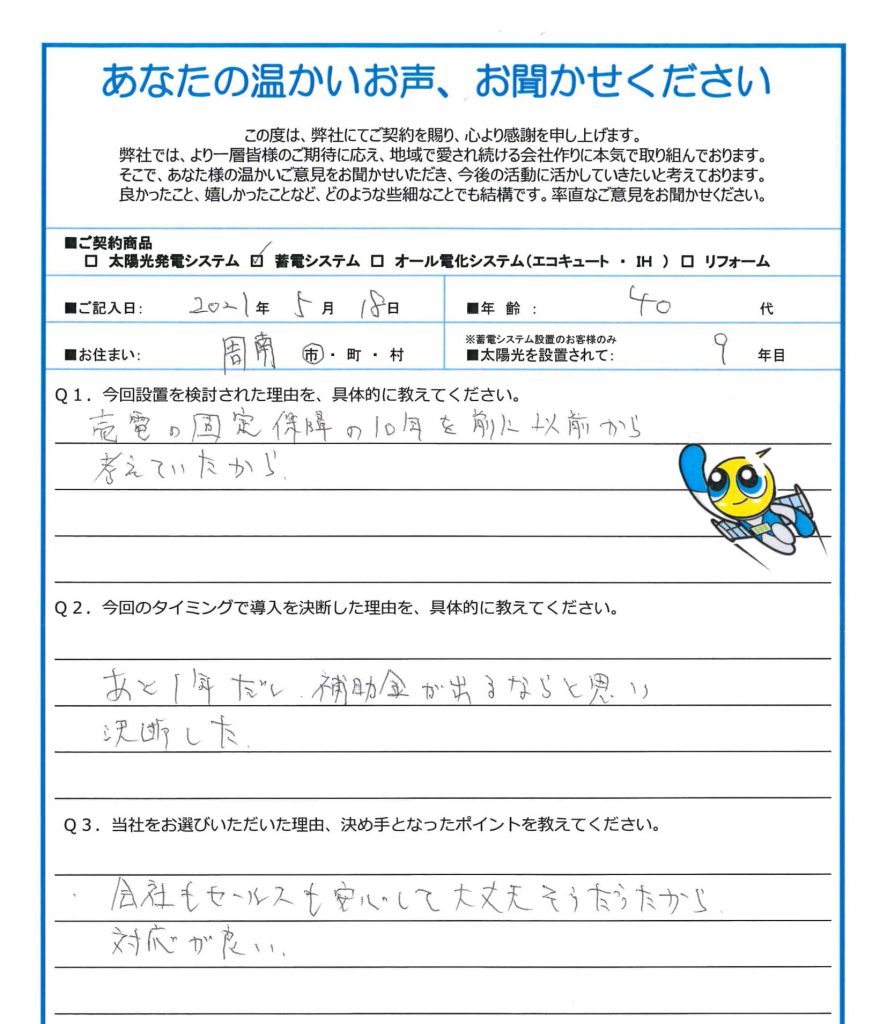 あなたの温かいお声、お聞かせください
この度は、弊社にてご契約を賜り、心より感謝を申し上げます。
弊社では、より一層皆様のご期待に応え、地域で愛され続ける会社作りに本気で取り組んでおります。
そこで、あなた様の温かいご意見をお聞かせいただき、今後の活動に活かしていきたいと考えております。
良かったこと、嬉しかったことなど、どのような些細なことでも結構です。率直なご意見をお聞かせください。
■ご契約商品
□ 太陽光発電システム ☑ 蓄電システム □ オール電化システム(エコキュート ・ IH ) □ リフォーム
■ご記入日: 2021年 5月 18日 ■年 齢 : 40 代
■お住まい: 周南 市・町・村 ※蓄電システム設置のお客様のみ
■太陽光を設置されて: 9 年目
Q1. 今回設置を検討された理由を、具体的に教えてください。
売電の固定保障の10年を前に以前から
考えていたから.
Q2. 今回のタイミングで導入を決断した理由を、具体的に教えてください。
あと1年だし、補助金が出るならと思い
決断した.
Q3. 当社をお選びいただいた理由、決め手となったポイントを教えてください。
・会社もセールスも安心して大丈夫そうだったから.
対応が良い.